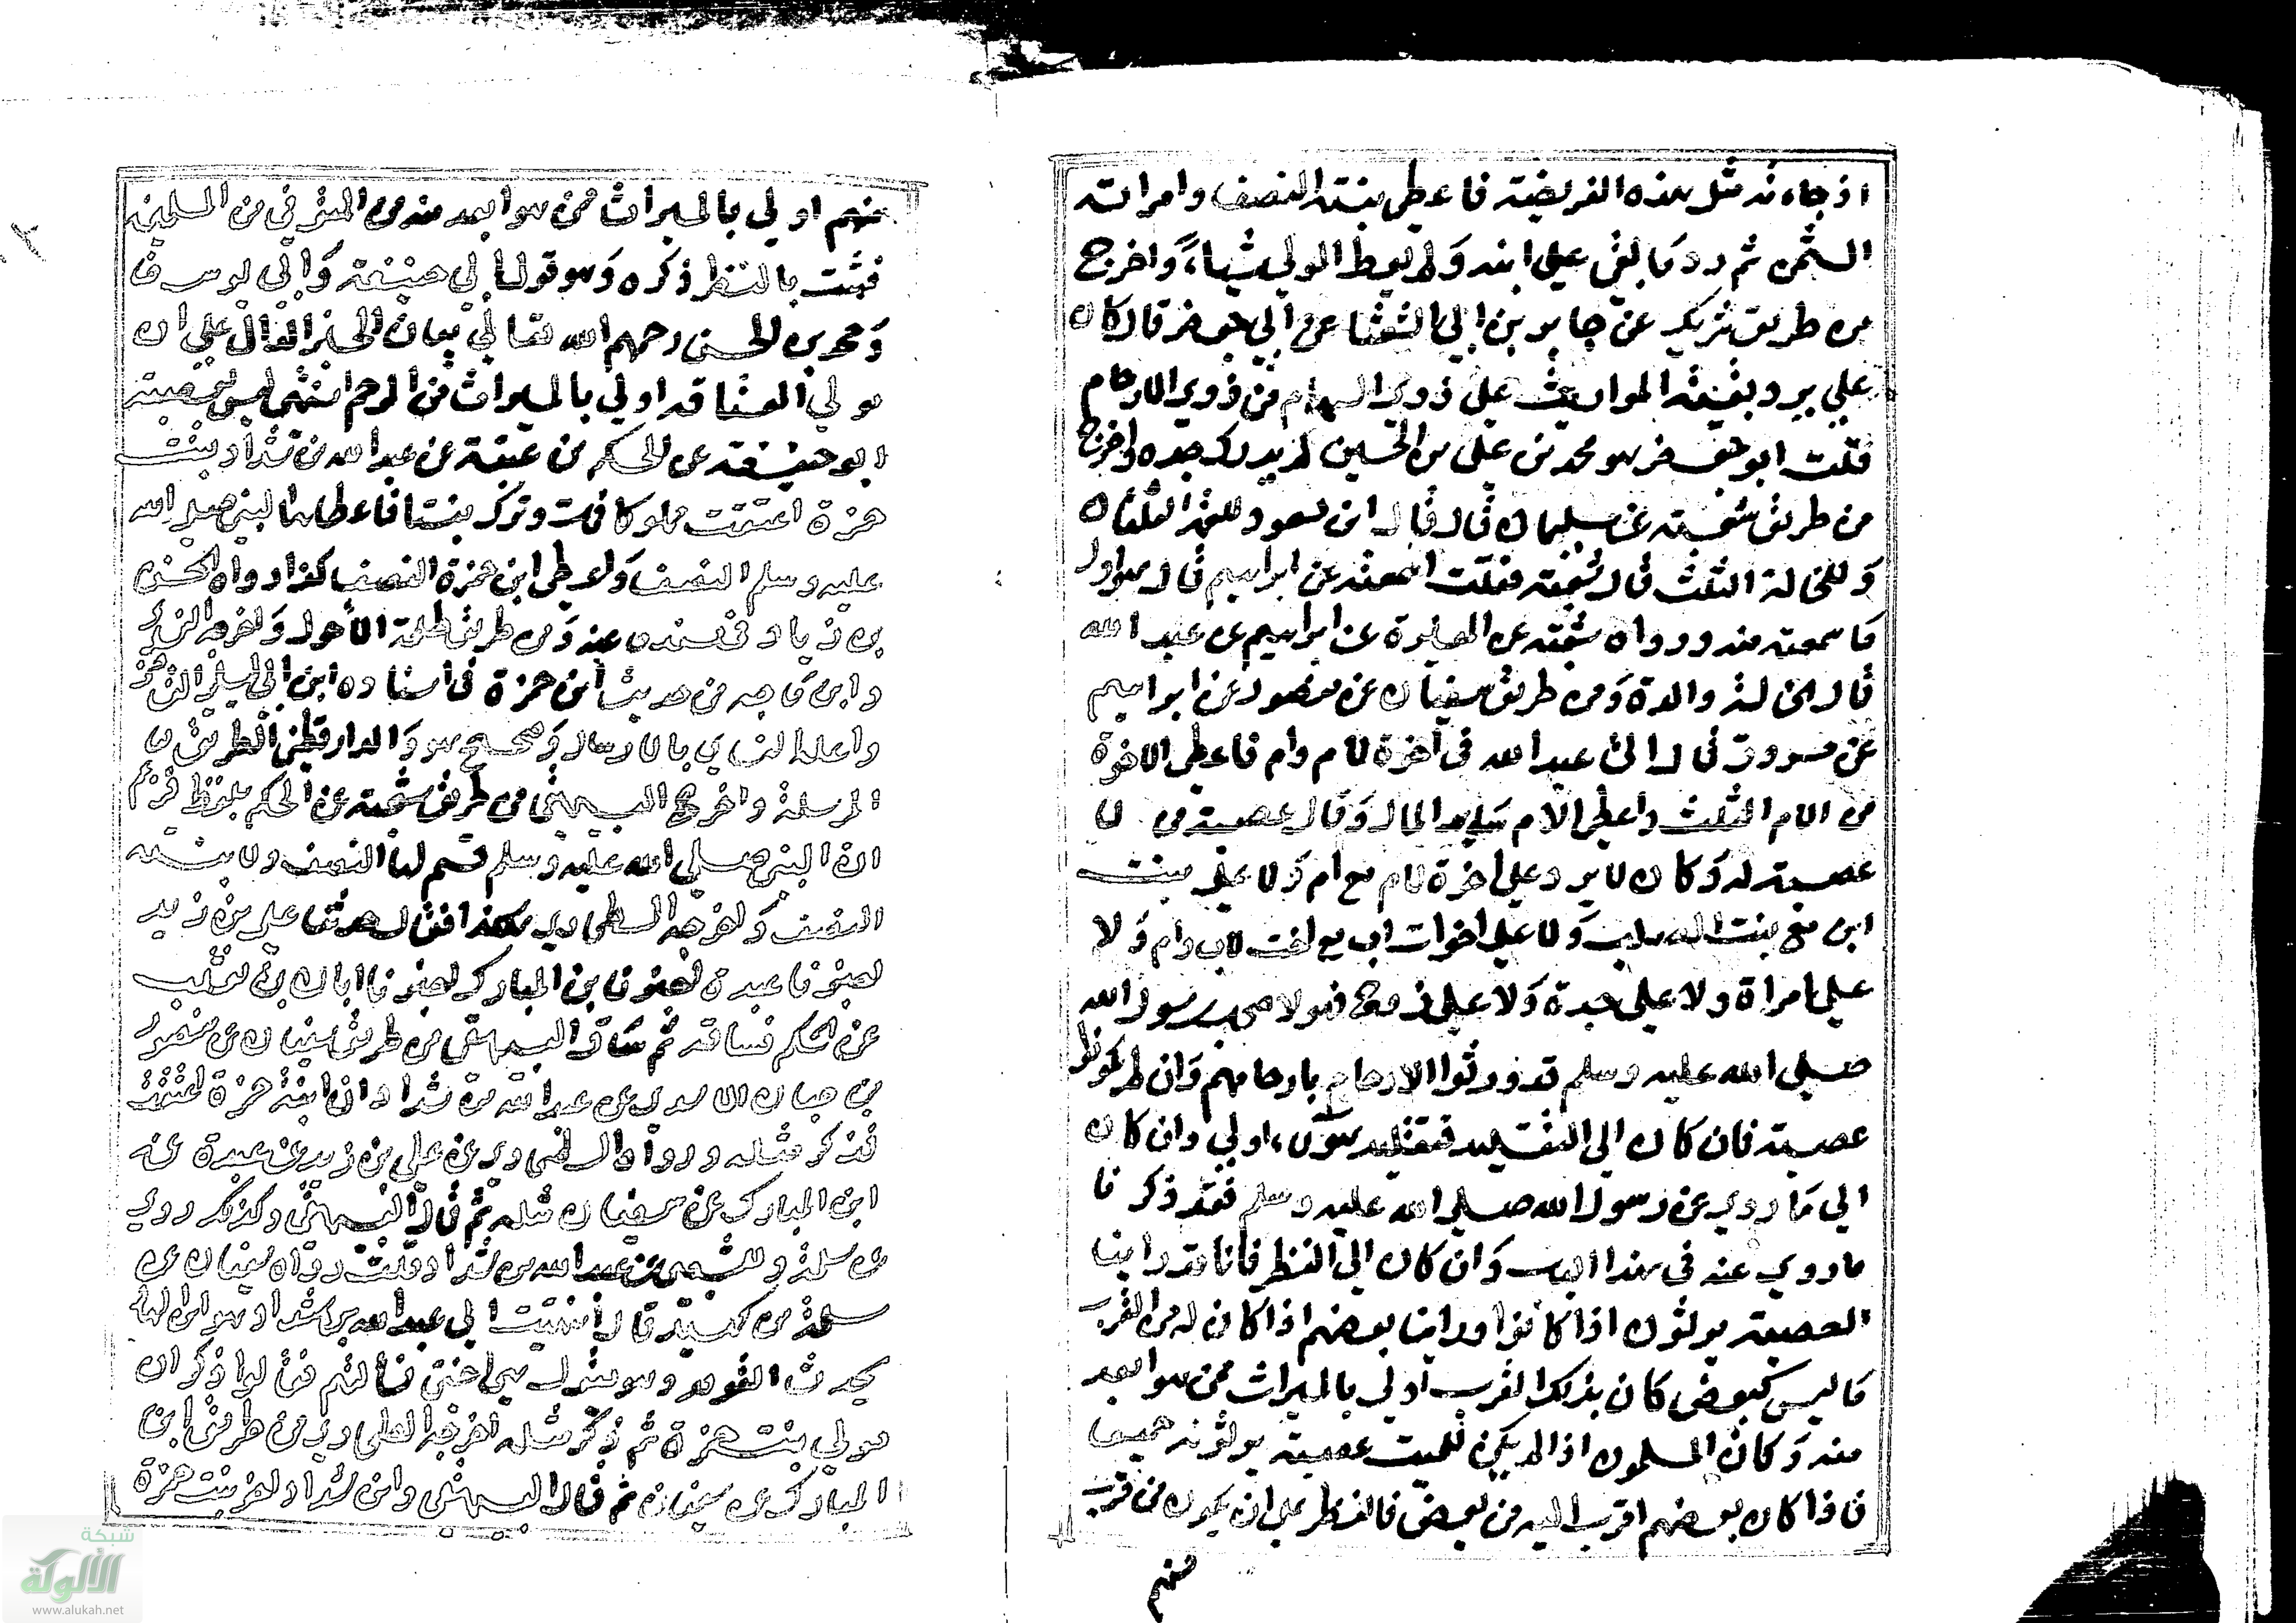 اذ جاءته مثل هذه الفريضة فاعطى بنته النصف وامراته
الثمن ثم رد ما بقى على ابنته ولم يعط المولى شيئا، واخرج
من طريق شريك عن جابر بن ابي الشعثا عن ابي جعفر قال كان
علي يرد بقية المواريث على ذوي السهام من ذوي الارحام
قلت ابو جعفر هو محمد بن علي بن الحسين لم يدرك جده واخرج
من طريق شعبة عن سليمان قال قال ابن مسعود للعمة الثلثان
وللخالة الثلث قال شعبة فقلت اسمعته عن ابراهيم قال هو اول
ما سمعته منه ورواه شعبة عن المغيرة عن ابراهيم عن عبد الله
قال الخالة والدة ومن طريق سفيان عن منصور عن ابراهيم
عن مسروق قال اتى عبد الله في اخوة لام وام فاعطى الاخوة
من الام الثلث واعطى الام سايد المال وقال عصبة من لا
عصبة له وكان لا يرد على اخوة لام مع ام ولا على بنت
ابن مع بنت الصلب ولا على اخوات اب مع اخت لاب وام ولا
على امراة ولا على جدة ولا على زوج فهولا صحب رسول الله
صلى الله عليه وسلم قد ورثوا الارحام بارحامهم وان لم يكونوا
عصبة فان كان الى التقليد فتقليد هولاء اولى وان كان
الى ما روي عن رسول الله صلى الله عليه وسلم فقد ذكرنا
ما روي عنه في هذا الباب وان كان الى النظر فانا قد راينا
العصبة يرثون اذا كانوا وراينا بعضهم اذا كان له من القرب
ما ليس كبعض كان بذلك القرب اولى بالميراث ممن هو ابعد
منه وكان المسلمون اذا لم يكن للميت عصبة يرثونه جميعا
فاذا كان بعضهم اقرب اليه من بعض فالنظر على ان يكون من قرب
منهم
منهم اولى بالميراث ممن هو ابعد منه من المتوفى من المسلمين
فثبت بالنظر ذكره وهو قول ابي حنيفة وابي يوسف
ومحمد بن الحسن رحمهم الله تعالى بيان الخبر الدال على ان
مولى العتاقة اولى بالميراث من الرحم انتهى ليس بعصبة
ابو حنيفة عن الحكم بن عتيبة عن عبد الله بن شداد بنت
حمزة اعتقت مملوكا فمات وترك بنتا فاعطاها النبي صلى الله
عليه وسلم النصف واعطى ابنة حمزة النصف كذا رواه الحسن
بن زياد في مسنده عنه ومن طريق طلحة الاحول واخرجه النسائي
وابن ماجه من حديث ابن حمزة في اسناده ابن ابي ليلى
واعله النسائي بالارسال وصحح هو والدارقطني الطريق
المرسلة واخرج البيهقي من طريق شعبة عن الحكم بلفظ
ان النبي صلى الله عليه وسلم قسم لها النصف ولابنته
النصف واخرجه الطحاوي هكذا فقال حدثنا علي بن زيد
اخبرنا عبدة اخبرنا بن المبارك اخبرنا ابان بن تغلب
عن الحكم فساقه ثم ساق البيهقي من طريق سفيان عن منصور
بن حيان الاسدي عن عبد الله بن شداد ان ابنة حمزة اعتقت
فذكر مثله ورواه الطحاوي عن علي بن زيد عن عبدة عن
ابن المبارك عن سفيان مثله ثم قال البيهقي وكذلك روي
عن سلمة والشعبي عن عبد الله بن شداد قلت رواه سفيان عن
سلمة بن كهيل قال انتهيت الى عبد الله بن شداد وهو
يحدث القوم وهو يقول هي اختي فسالتهم فقالوا ذكر ان
مولى بنت حمزة ثم ذكر مثله اخرجه الطحاوي من طريق ابن
المبارك عن سفيان ثم قال البيهقي وابن شداد اخو بنت حمزة
شبكة
الألوكة
www.alukah.net